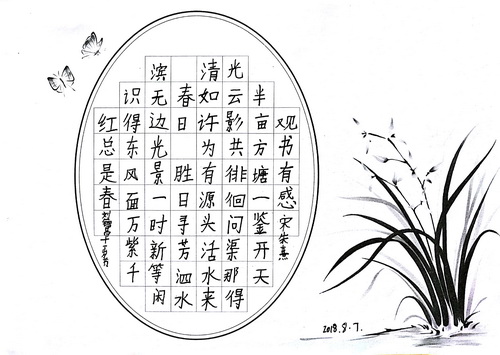 观书有感 宋朱熹
半亩方塘一鉴开天
光云影共徘徊问渠那得
清如许为有源头活水来
春日 胜日寻芳泗水
滨无边光景一时新等闲
识得东风面万紫千
红总是春
2018.8.7.